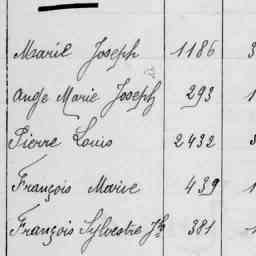 Marie Joseph 1186 3
Ange Marie Joseph 293 1
Pierre Louis 2432 3
François Marie 439 1
François Sylvestre Jh 381 1